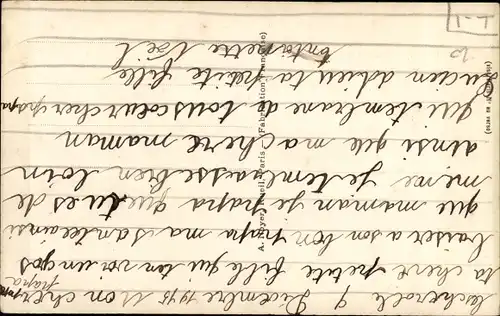 Lescherolle 9 Decembre 1915 Mon cher papa
ta chere petite fille qui tan voi un gos
baiser a son bon papa ma santee ainsi
que maman je papa que tu es de
meme je tembrasse bien loin
ainsi que ma chere maman
qui tembrane de tous coeur cher papa
Lucien adieu ta petite fille
Antoinette Noël
A. Noyer, Paris (Fabrication Française)